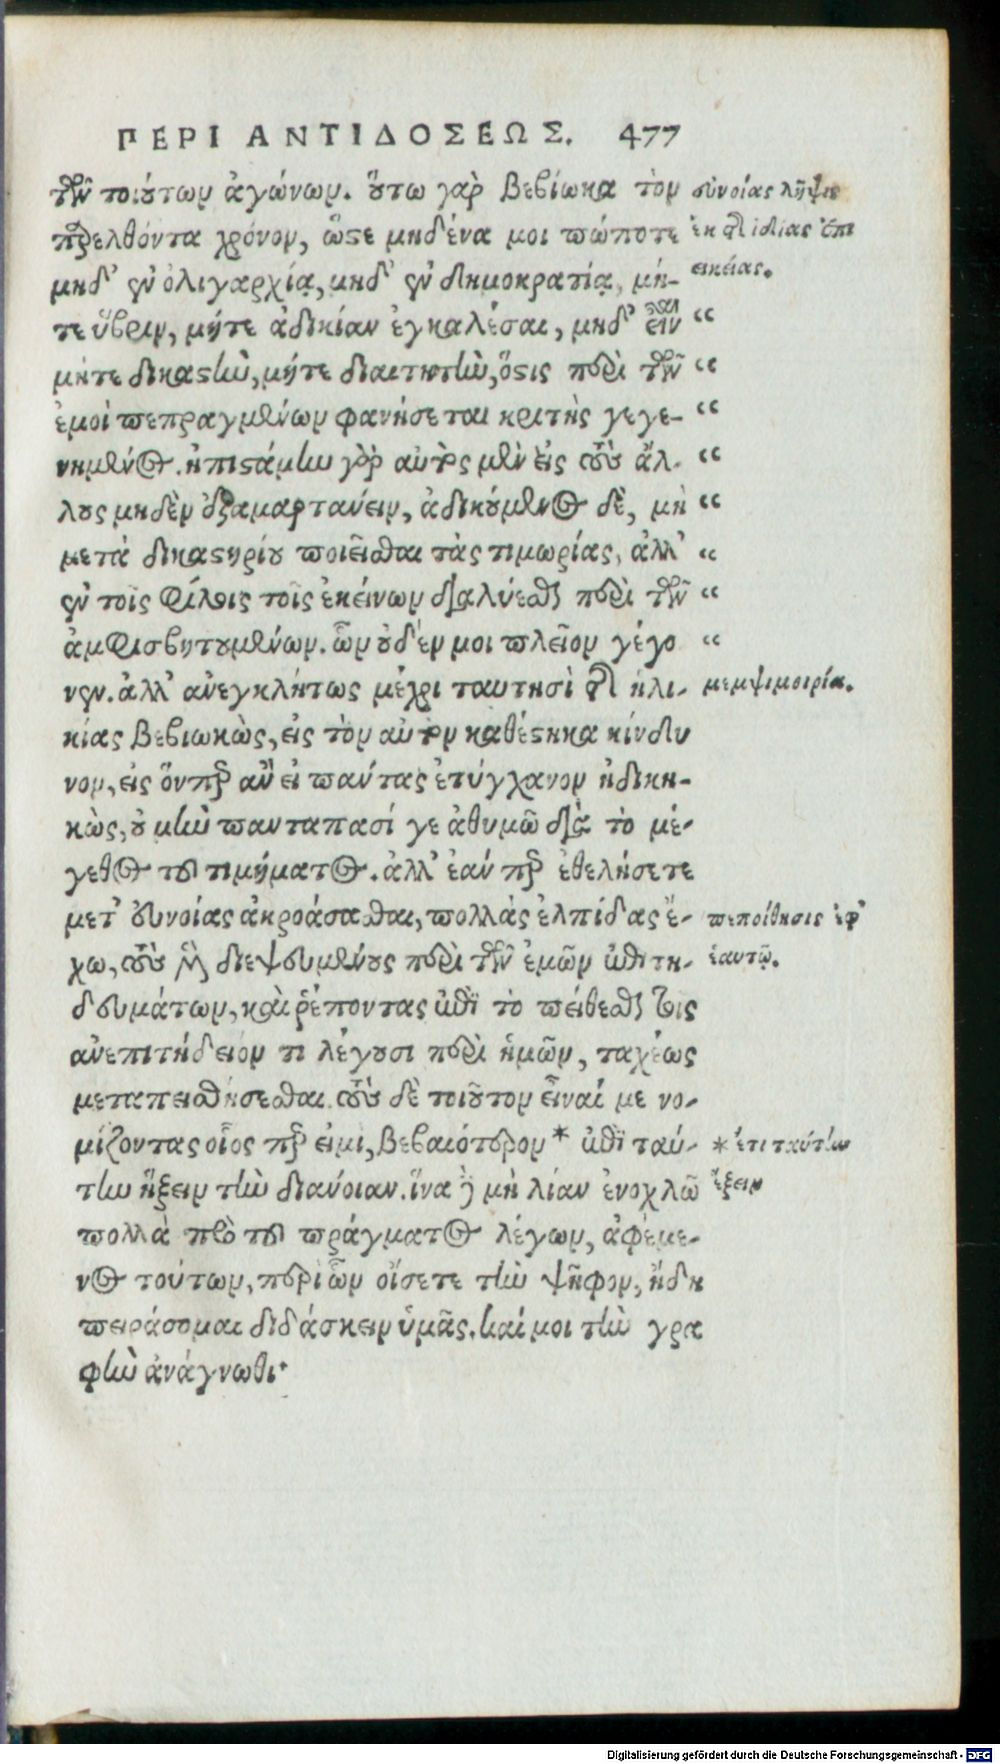 ΠΕΡΙ ΑΝΤΙΔΟΣΕΩΣ. 477
τῶν τοιούτων ἀγώνων. οὕτω γὰρ βεβίωκα τὸν
παρελθόντα χρόνον, ὥστε μηδένα μοι πώποτε
μηδ' ἐν ὀλιγαρχίᾳ, μηδ' ἐν δημοκρατίᾳ, μή-
τε ὕβριν, μήτε ἀδικίαν ἐγκαλέσαι, μηδ' εἶναι
μήτε δικαστὴν, μήτε διαιτητὴν, ὅστις περὶ τῶν
ἐμοὶ πεπραγμένων φανήσεται κριτὴς γεγε-
νημένος. ἠπιστάμην γὰρ αὐτὸς μὲν εἰς τοὺς ἄλ-
λους μηδὲν ἐξαμαρτάνειν, ἀδικούμενος δὲ, μὴ
μετὰ δικαστηρίου ποιεῖσθαι τὰς τιμωρίας, ἀλλ'
ἐν τοῖς φίλοις τοῖς ἐκείνων διαλύεσθαι περὶ τῶν
ἀμφισβητουμένων. ὧν οὐδέν μοι πλεῖον γέγο
νεν. ἀλλ' ἀνεγκλήτως μέχρι ταυτησὶ τῆς ἡλι-
κίας βεβιωκὼς, εἰς τὸν αὐτὸν καθέστηκα κίνδυ
νον, εἰς ὅνπερ ἂν εἰ πάντας ἐτύγχανον ἠδικη-
κὼς, οὐ μὴν πανταπασί γε ἀθυμῶ διὰ τὸ μέ-
γεθος τοῦ τιμήματος. ἀλλ' ἐάν περ ἐθελήσετε
μετ' εὐνοίας ἀκροάσασθαι, πολλὰς ἐλπίδας ἔ-
χω, τοὺς μὲν διεψευσμένους περὶ τῶν ἐμῶν ἐπιτη-
δευμάτων, καὶ ῥέποντας ἐπὶ τὸ πείθεσθαι τοῖς
ἀνεπιτήδειόν τι λέγουσι περὶ ἡμῶν, ταχέως
μεταπεισθήσεσθαι. τοὺς δὲ τοιοῦτον εἶναί με νο-
μίζοντας οἷός περ εἰμι, βεβαιότερον * ἐπὶ ταύ-
την ἥξειν τὴν διάνοιαν. ἵνα δὲ μὴ λίαν ἐνοχλῶ
πολλὰ πρὸ τοῦ πράγματος λέγων, ἀφέμε-
νος τούτων, περὶ ὧν οἴσετε τὴν ψῆφον, ἤδη
πειράσομαι διδάσκειν ὑμᾶς. καί μοι τὴν γρα
φὴν ἀνάγνωθι.
εὐνοίας λῆψις
ἐκ τῆς ἰδίας ἐπι
εικείας.
“
“
“
“
“
“
“
“
μεμψιμοιρία.
πεποίθησις ἐφ'
ἑαυτῷ.
* ἔτι ταύτην
ἕξειν
Digitalisierung gefördert durch die Deutsche Forschungsgemeinschaft - DFG